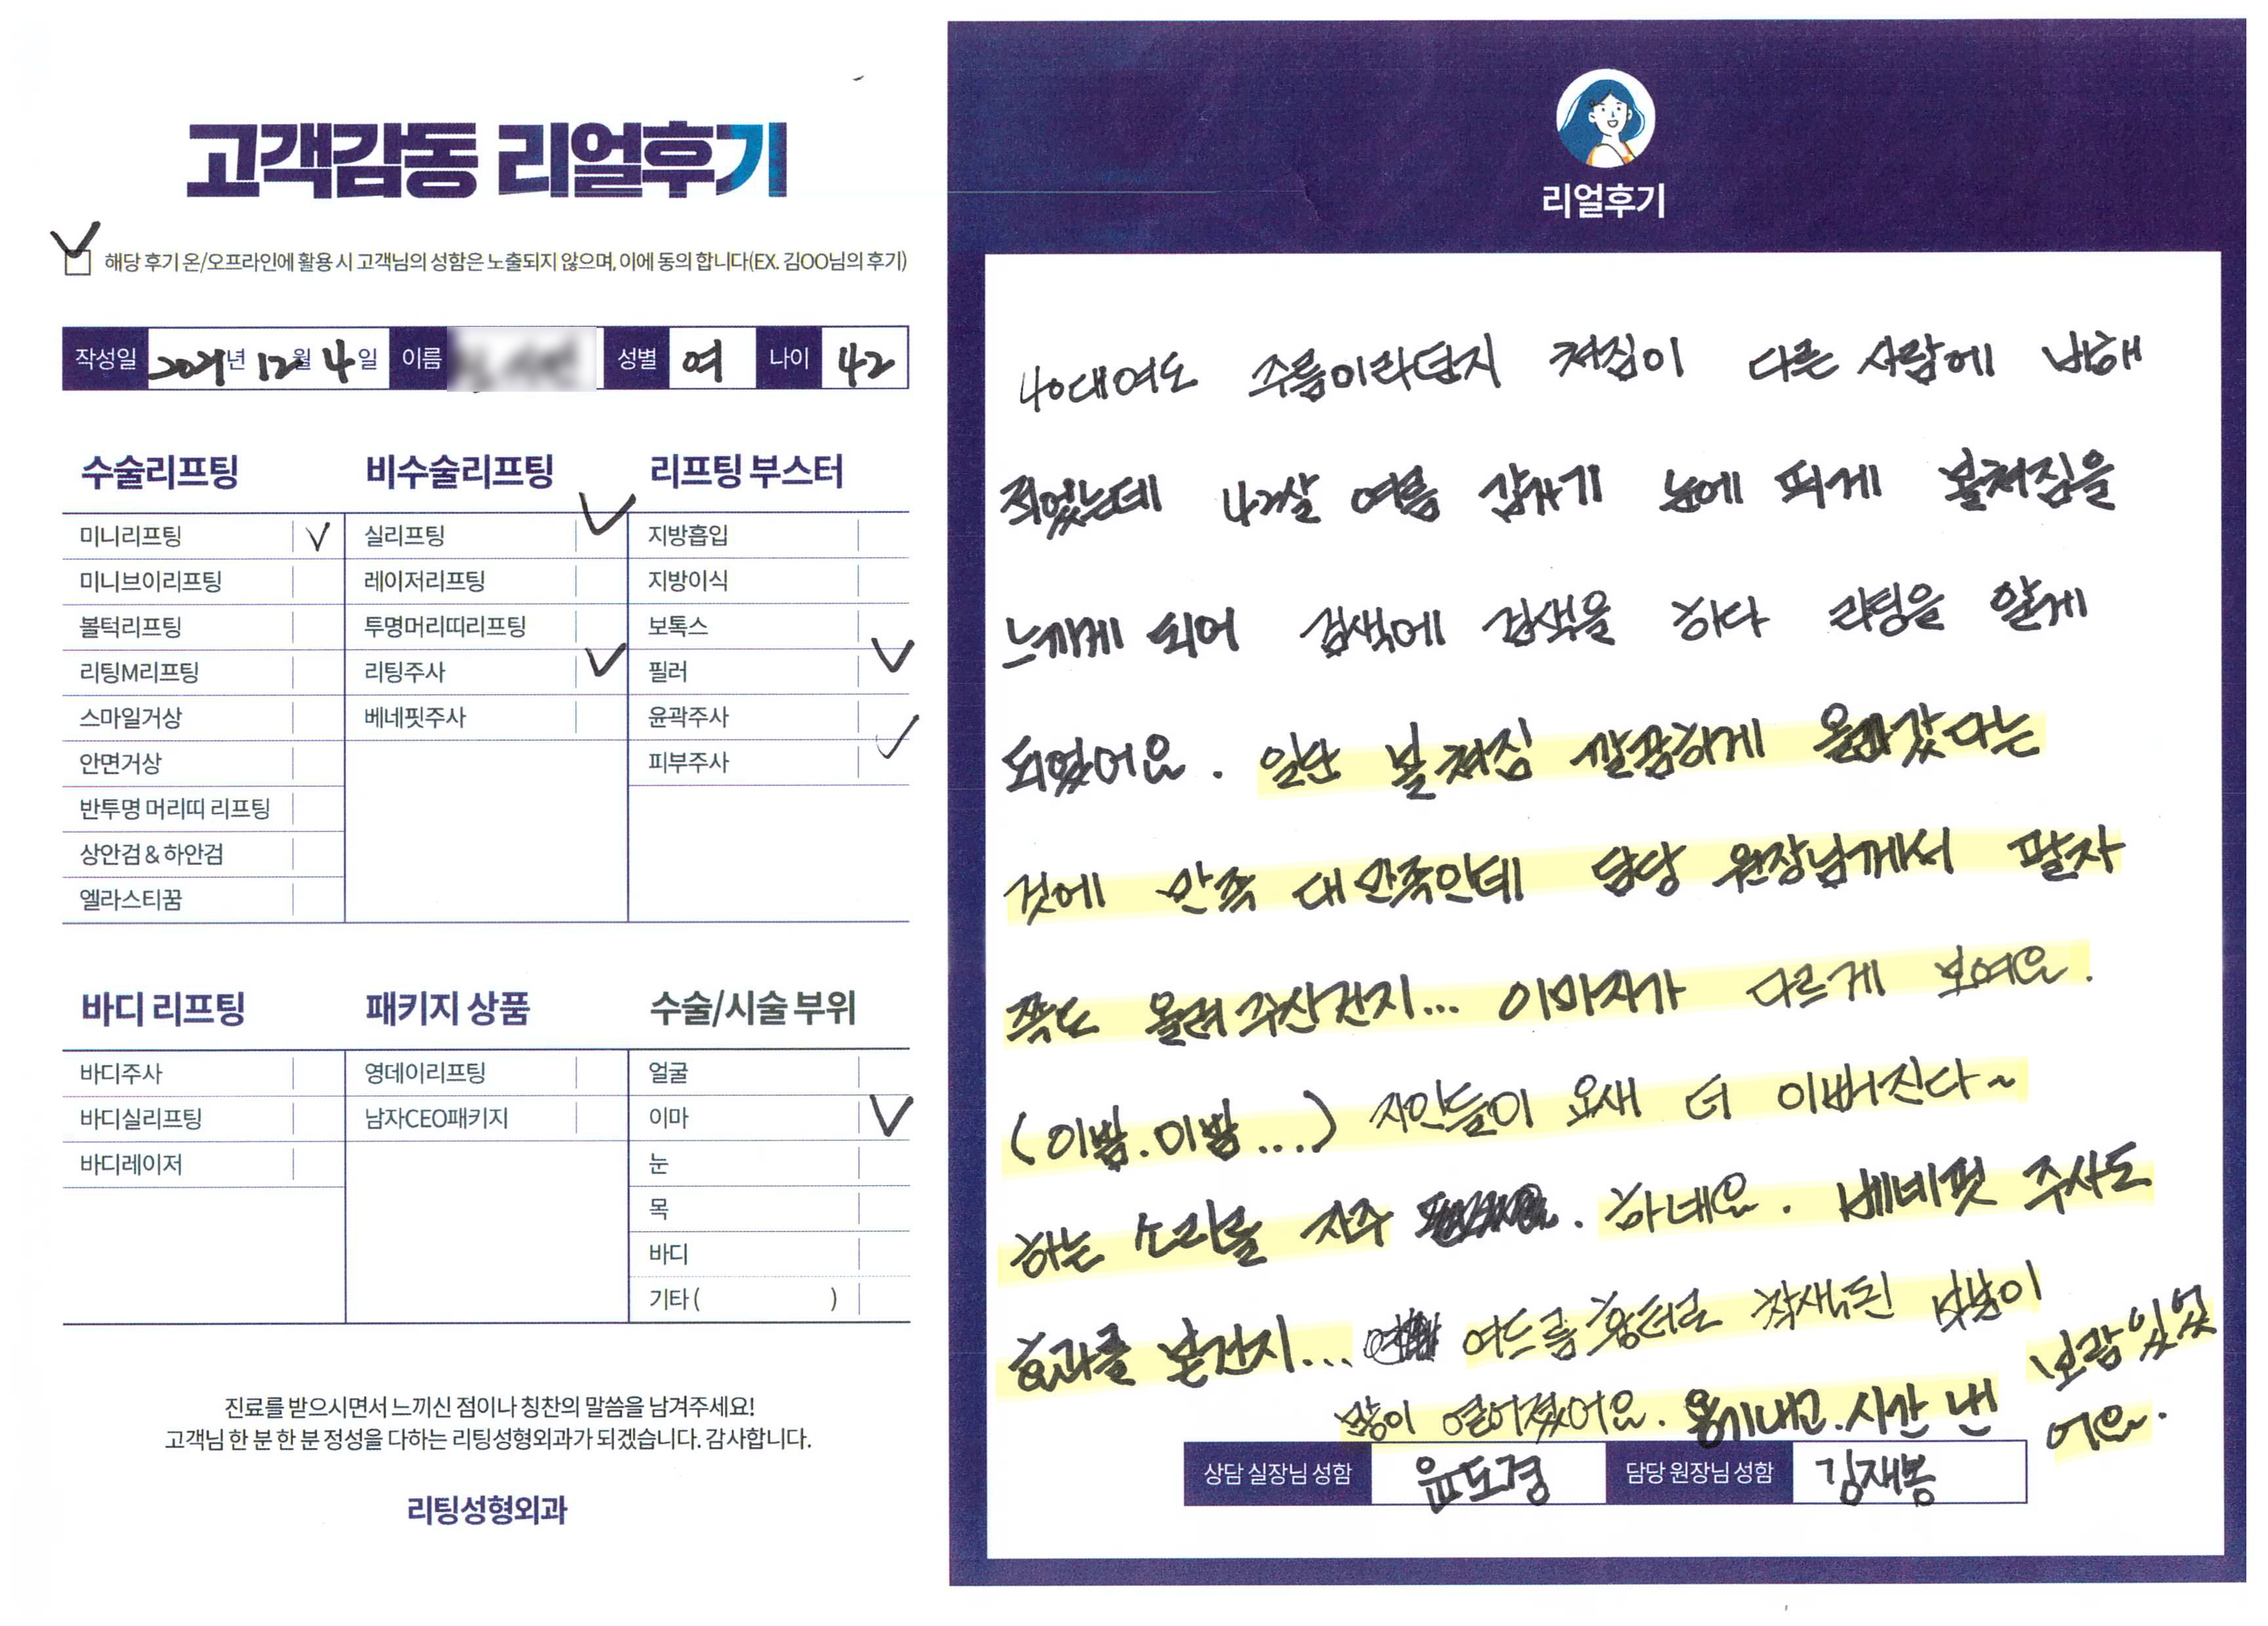 고객감동 리얼후기
해당 후기 온/오프라인에 활용 시 고객님의 성함은 노출되지 않으며, 이에 동의 합니다(EX. 김OO님의 후기)
작성일 2021년 12월 4일 이름 성별 여 나이 42
수술리프팅
미니리프팅 ✓
미니브이리프팅
볼턱리프팅
리팅M리프팅
스마일거상
안면거상
반투명 머리띠 리프팅
상안검 & 하안검
엘라스티꿈
비수술리프팅
실리프팅 ✓
레이저리프팅
투명머리띠리프팅
리팅주사 ✓
베네핏주사
리프팅 부스터
지방흡입
지방이식
보톡스
필러 ✓
윤곽주사
피부주사 ✓
바디 리프팅
바디주사
바디실리프팅
바디레이저
패키지 상품
영데이리프팅
남자CEO패키지
수술/시술 부위
얼굴
이마 ✓
눈
목
바디
기타 ( )
진료를 받으시면서 느끼신 점이나 칭찬의 말씀을 남겨주세요!
고객님 한 분 한 분 정성을 다하는 리팅성형외과가 되겠습니다. 감사합니다.
리팅성형외과
리얼후기
40대여도 주름이라던지 쳐짐이 다른 사람에 비해
적었는데 42살 여름 갑자기 눈에 띄게 볼쳐짐을
느끼게 되어 검색에 검색을 하다 리팅을 알게
되었어요. 일단 볼 쳐짐 깔끔하게 올라갔다는
것에 만족 대만족인데 담당 원장님께서 팔자
쪽도 올려주신건지... 이마자가 다르게 보여요.
(이뽐.이뽐...) 지인들이 요새 더 이뻐진다~
하는 소리를 자주 하네요. 베네핏 주사도
효과를 본건지... 여드름 흉터로 착색된 부분이
많이 옅어졌어요. 용기내고.시간 낸 보람있었
어요.
상담 실장님 성함 윤도경 담당 원장님 성함 김재봉